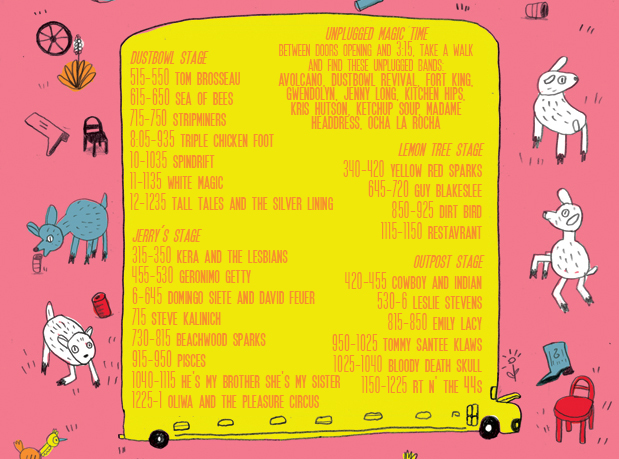 DUSTBOWL STAGE
515-550 TOM BROSSEAU
615-650 SEA OF BEES
715-750 STRIPMINERS
8:05-935 TRIPLE CHICKEN FOOT
10-1035 SPINDRIFT
11-1135 WHITE MAGIC
12-1235 TALL TALES AND THE SILVER LINING
JERRY'S STAGE
315-350 KERA AND THE LESBIANS
455-530 GERONIMO GETTY
6-645 DOMINGO SIETE AND DAVID FEUER
715 STEVE KALINICH
730-815 BEACHWOOD SPARKS
915-950 PISCES
1040-1115 HE'S MY BROTHER SHE'S MY SISTER
1225-1 OLIWA AND THE PLEASURE CIRCUS
UNPLUGGED MAGIC TIME
BETWEEN DOORS OPENING AND 3:15, TAKE A WALK
AND FIND THESE UNPLUGGED BANDS:
AVOLCANO, DUSTBOWL REVIVAL, FORT KING,
GWENDOLYN, JENNY LONG, KITCHEN HIPS,
KRIS HUTSON, KETCHUP SOUP, MADAME
HEADDRESS, OCHA LA ROCHA
LEMON TREE STAGE
340-420 YELLOW RED SPARKS
645-720 GUY BLAKESLEE
850-925 DIRT BIRD
1115-1150 RESTAVRANT
OUTPOST STAGE
420-455 COWBOY AND INDIAN
530-6 LESLIE STEVENS
815-850 EMILY LACY
950-1025 TOMMY SANTEE KLAWS
1025-1040 BLOODY DEATH SKULL
1150-1225 RT N' THE 44S